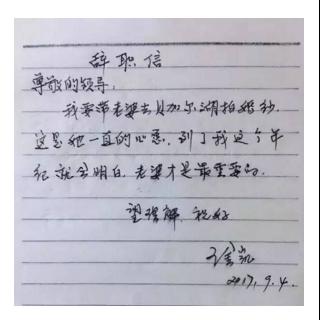 辞职信
尊敬的领导：
我要带老婆去贝加尔湖拍婚纱.
这是她一直的心愿.到了我这个年
纪就会明白.老婆才是最重要的.
望理解.祝好
2017.9.4.